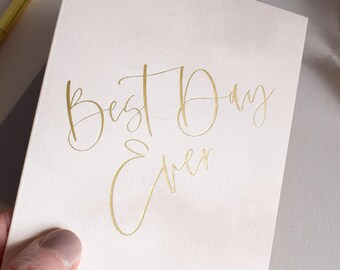 Best Day
Ever